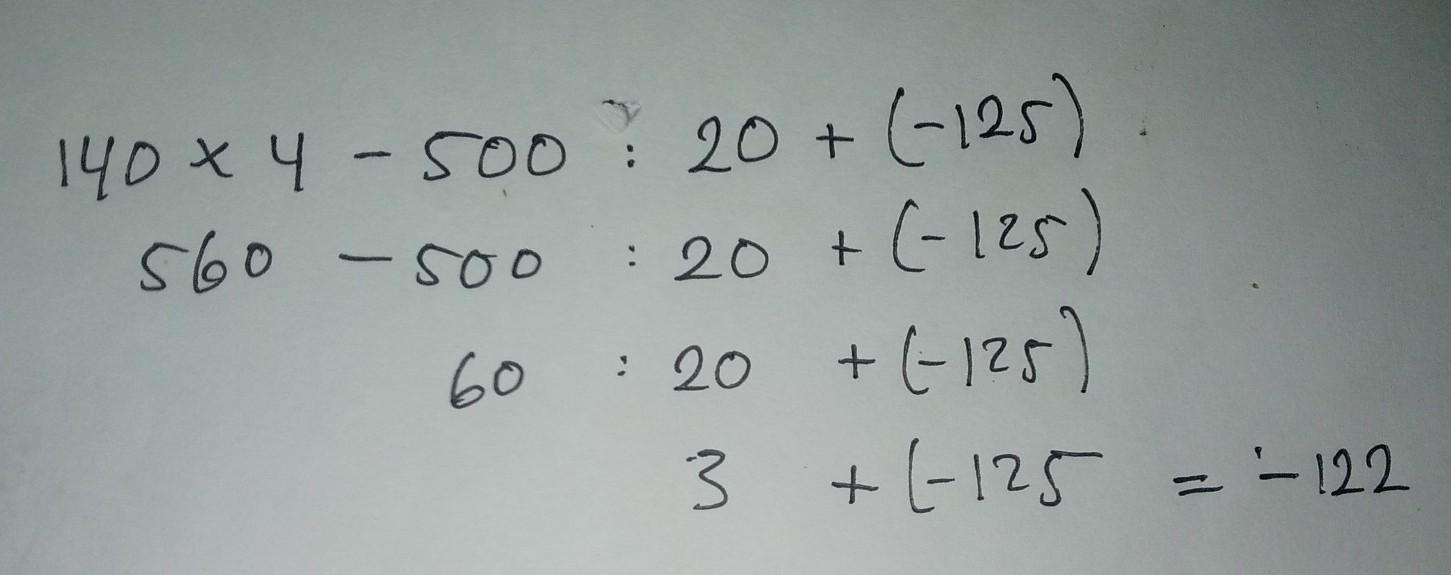 140 × 4 - 500 : 20 + (-125)
560 - 500 : 20 + (-125)
60 : 20 + (-125)
3 + (-125 = -122